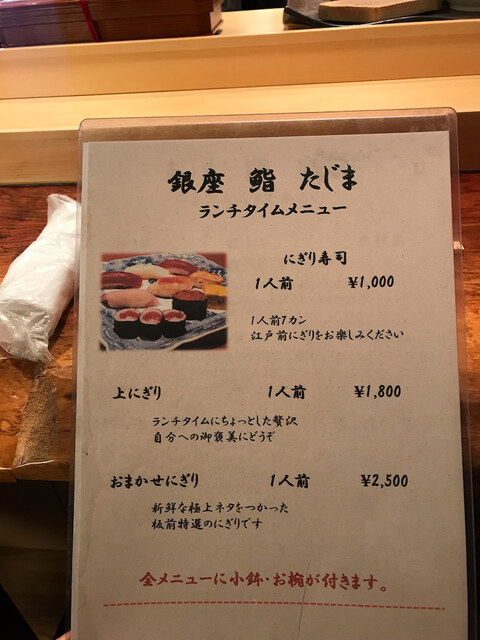 銀座 鮨 たじま
ランチタイムメニュー
にぎり寿司
1人前 ¥1,000
1人前7カン
江戸前にぎりをお楽しみください
上にぎり 1人前 ¥1,800
ランチタイムにちょっとした贅沢
自分への御褒美にどうぞ
おまかせにぎり 1人前 ¥2,500
新鮮な極上ネタをつかった
板前特選のにぎりです
全メニューに小鉢・お椀が付きます。